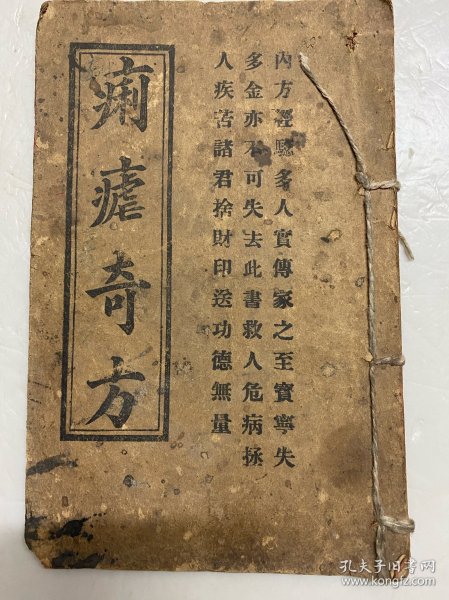 內方經驗多人實傳家之至寶寧失
多金亦不可失去此書救人危病拯
人疾苦諸君捨財印送功德無量
痢瘧奇方
孔夫子旧书网
www.kongfz.com